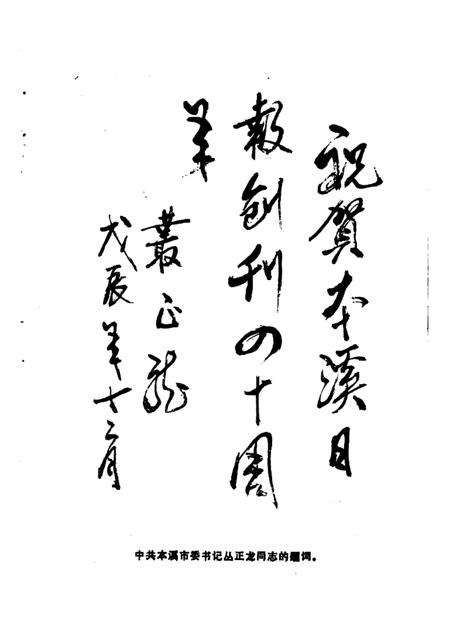 祝賀本溪日
報創刊四十周
年
叢正龍
戊辰年十二月
中共本溪市委书记丛正龙同志的题词。